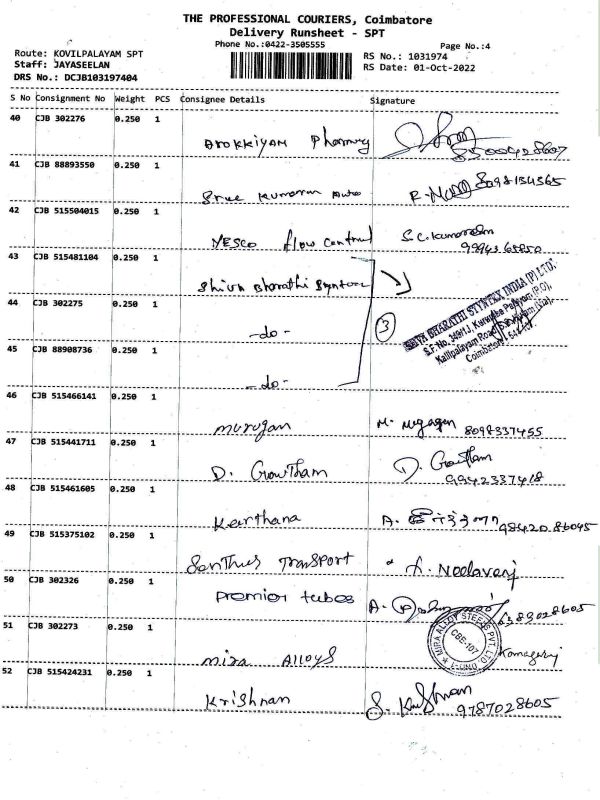 THE PROFESSIONAL COURIERS, Coimbatore
Delivery Runsheet - SPT
Phone No.:0422-3505555
Page No.:4
Route: KOVILPALAYAM SPT
RS No.: 1031974
Staff: JAYASEELAN
RS Date: 01-Oct-2022
DRS No.: DCJB103197404
S No Consignment No Weight PCS Consignee Details Signature
40 CJB 302276 0.250 1
Arokkiyam Pharmacy
41 CJB 88893550 0.250 1
Sree Kumaran Auto 8098134565
42 CJB 515504015 0.250 1
MESCO flow control S.C. Kumaresan
43 CJB 515481104 0.250 1
Shiva Bharathi Syntex
SHIVA BHARATHI SYNTEX INDIA (P) LTD.
44 CJB 302275 0.250 1
-do- 3
45 CJB 88908736 0.250 1
-do-
46 CJB 515466141 0.250 1
murugan M. 8098337455
47 CJB 515441711 0.250 1
D. Gowtham D. Gowtham
9942337418
48 CJB 515461605 0.250 1
Keerthana A. 98420 86045
49 CJB 515375102 0.250 1
Santhus Transport
50 CJB 302326 0.250 1
premier tubes A. 6389028605
51 CJB 302273 0.250 1
mira Alloys
MIRA ALLOY STEELS PVT. LTD.
CBE-107
52 CJB 515424231 0.250 1
Krishnan S. Krishnan
9787028605